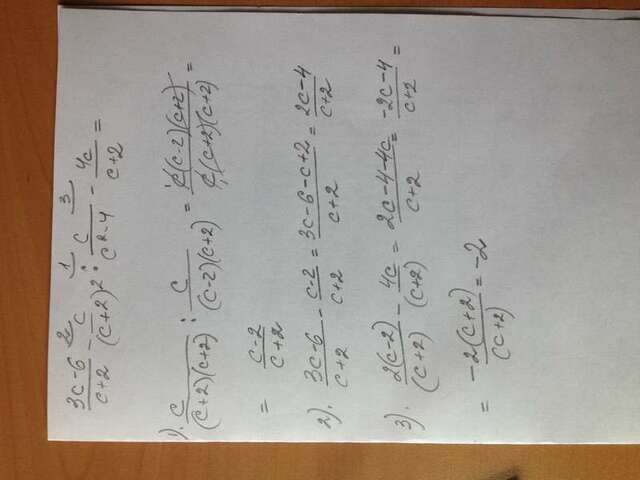 2 1 3
(3c-6)/(c+2) - c/(c+2)² : c/(c²-4) - 4c/(c+2) =
1). c/((c+2)(c+2)) : c/((c-2)(c+2)) = c(c-2)(c+2)/(c(c+2)(c+2)) =
= (c-2)/(c+2)
2). (3c-6)/(c+2) - (c-2)/(c+2) = (3c-6-c+2)/(c+2) = (2c-4)/(c+2)
3). 2(c-2)/(c+2) - 4c/(c+2) = (2c-4-4c)/(c+2) = (-2c-4)/(c+2) =
= -2(c+2)/(c+2) = -2